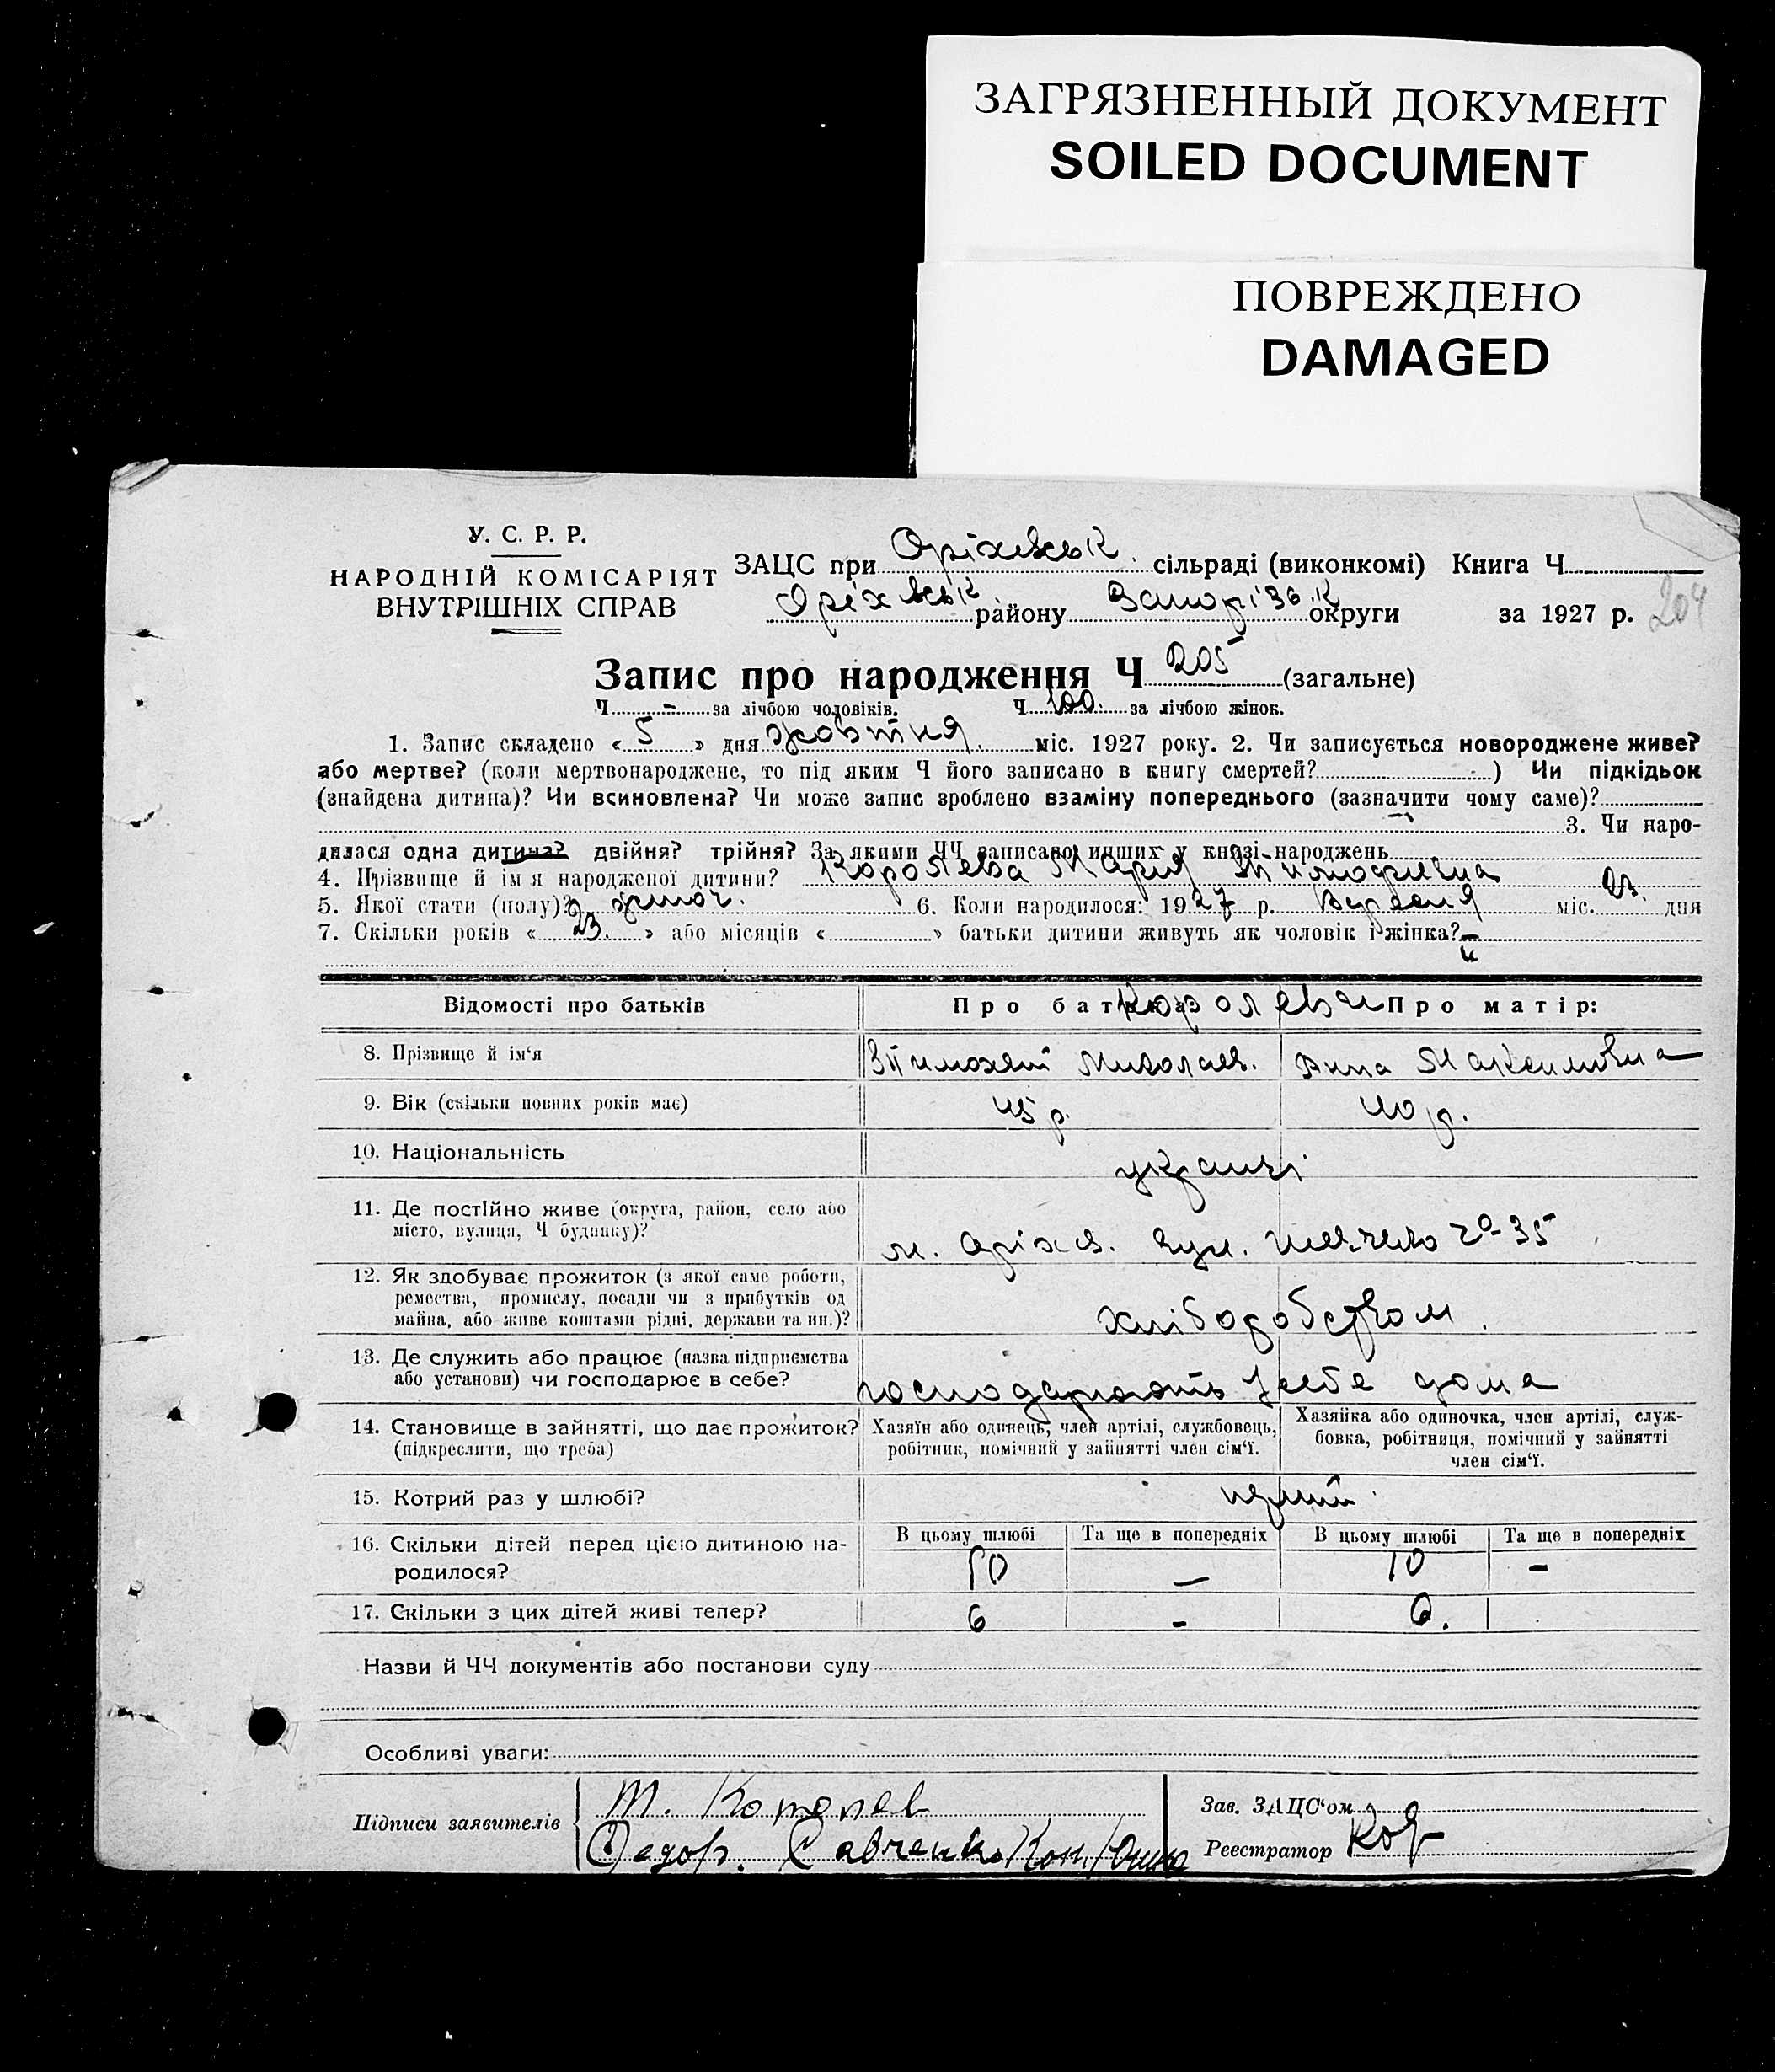 ЗАГРЯЗНЕННЫЙ ДОКУМЕНТ
SOILED DOCUMENT
ПОВРЕЖДЕНО
DAMAGED
У. С. Р. Р.
НАРОДНІЙ КОМІСАРІЯТ
ВНУТРІШНІХ СПРАВ
ЗАЦС при Оріхівськ. сільраді (виконкомі) Книга Ч
Оріхівськ. району Запоріз.к округи за 1927 р. 204
Запис про народження Ч 205 (загальне)
Ч - за лічбою чоловіків. Ч 100. за лічбою жінок.
1. Запис складено « 5 » дня жовтня міс. 1927 року. 2. Чи записується новороджене живе?
або мертве? (коли мертвонароджене, то під яким Ч його записано в книгу смертей? ) Чи підкідьок
(знайдена дитина)? Чи всиновлена? Чи може запис зроблено взаміну попереднього (зазначити чому саме)?
3. Чи наро-
дилася одна дитина? двійня? трійня? За якими ЧЧ записано инших у книзі народжень
4. Прізвище й ім'я народженої дитини? Королева Марія Тимофіевна
5. Якої статі (полу)? жіноч. 6. Коли народилося: 1927 р. Вересня міс. 23. дня
7. Скільки років « 23. » або місяців « » батьки дитини живуть як чоловік і жінка?
Відомості про батьків Про батька: Про матір:
Королеви
8. Прізвище й ім'я Тимохей Миколаєв. Анна Максимовна
9. Вік (скільки повних років має) 45 р. 40 р.
10. Національність українці
11. Де постійно живе (округа, район, село або
місто, вулиця, Ч будинку)? м. Оріхів. вул. 35
12. Як здобуває прожиток (з якої саме роботи,
ремества, промислу, посади чи з прибутків од
майна, або живе коштами рідні, держави та ин.)? хліборобством.
13. Де служить або працює (назва підприємства
або установи) чи господарює в себе? господарюють у себе дома
14. Становище в зайнятті, що дає прожиток? Хазяїн або одинець, член артілі, службовець, Хазяйка або одиночка, член артілі, служ-
(підкреслити, що треба) робітник, помічний у зайнятті член сім'ї. бовка, робітниця, помічний у зайнятті
член сім'ї.
15. Котрий раз у шлюбі? перший
В цьому шлюбі Та ще в попередніх В цьому шлюбі Та ще в попередніх
16. Скільки дітей перед цією дитиною на-
родилося? 10 — 10 -
17. Скільки з цих дітей живі тепер? 6 - 6.
Назви й ЧЧ документів або постанови суду
Особливі уваги:
Підписи заявителів Т. Королев
Федор. Савченко
Зав. ЗАЦС'ом
Реєстратор